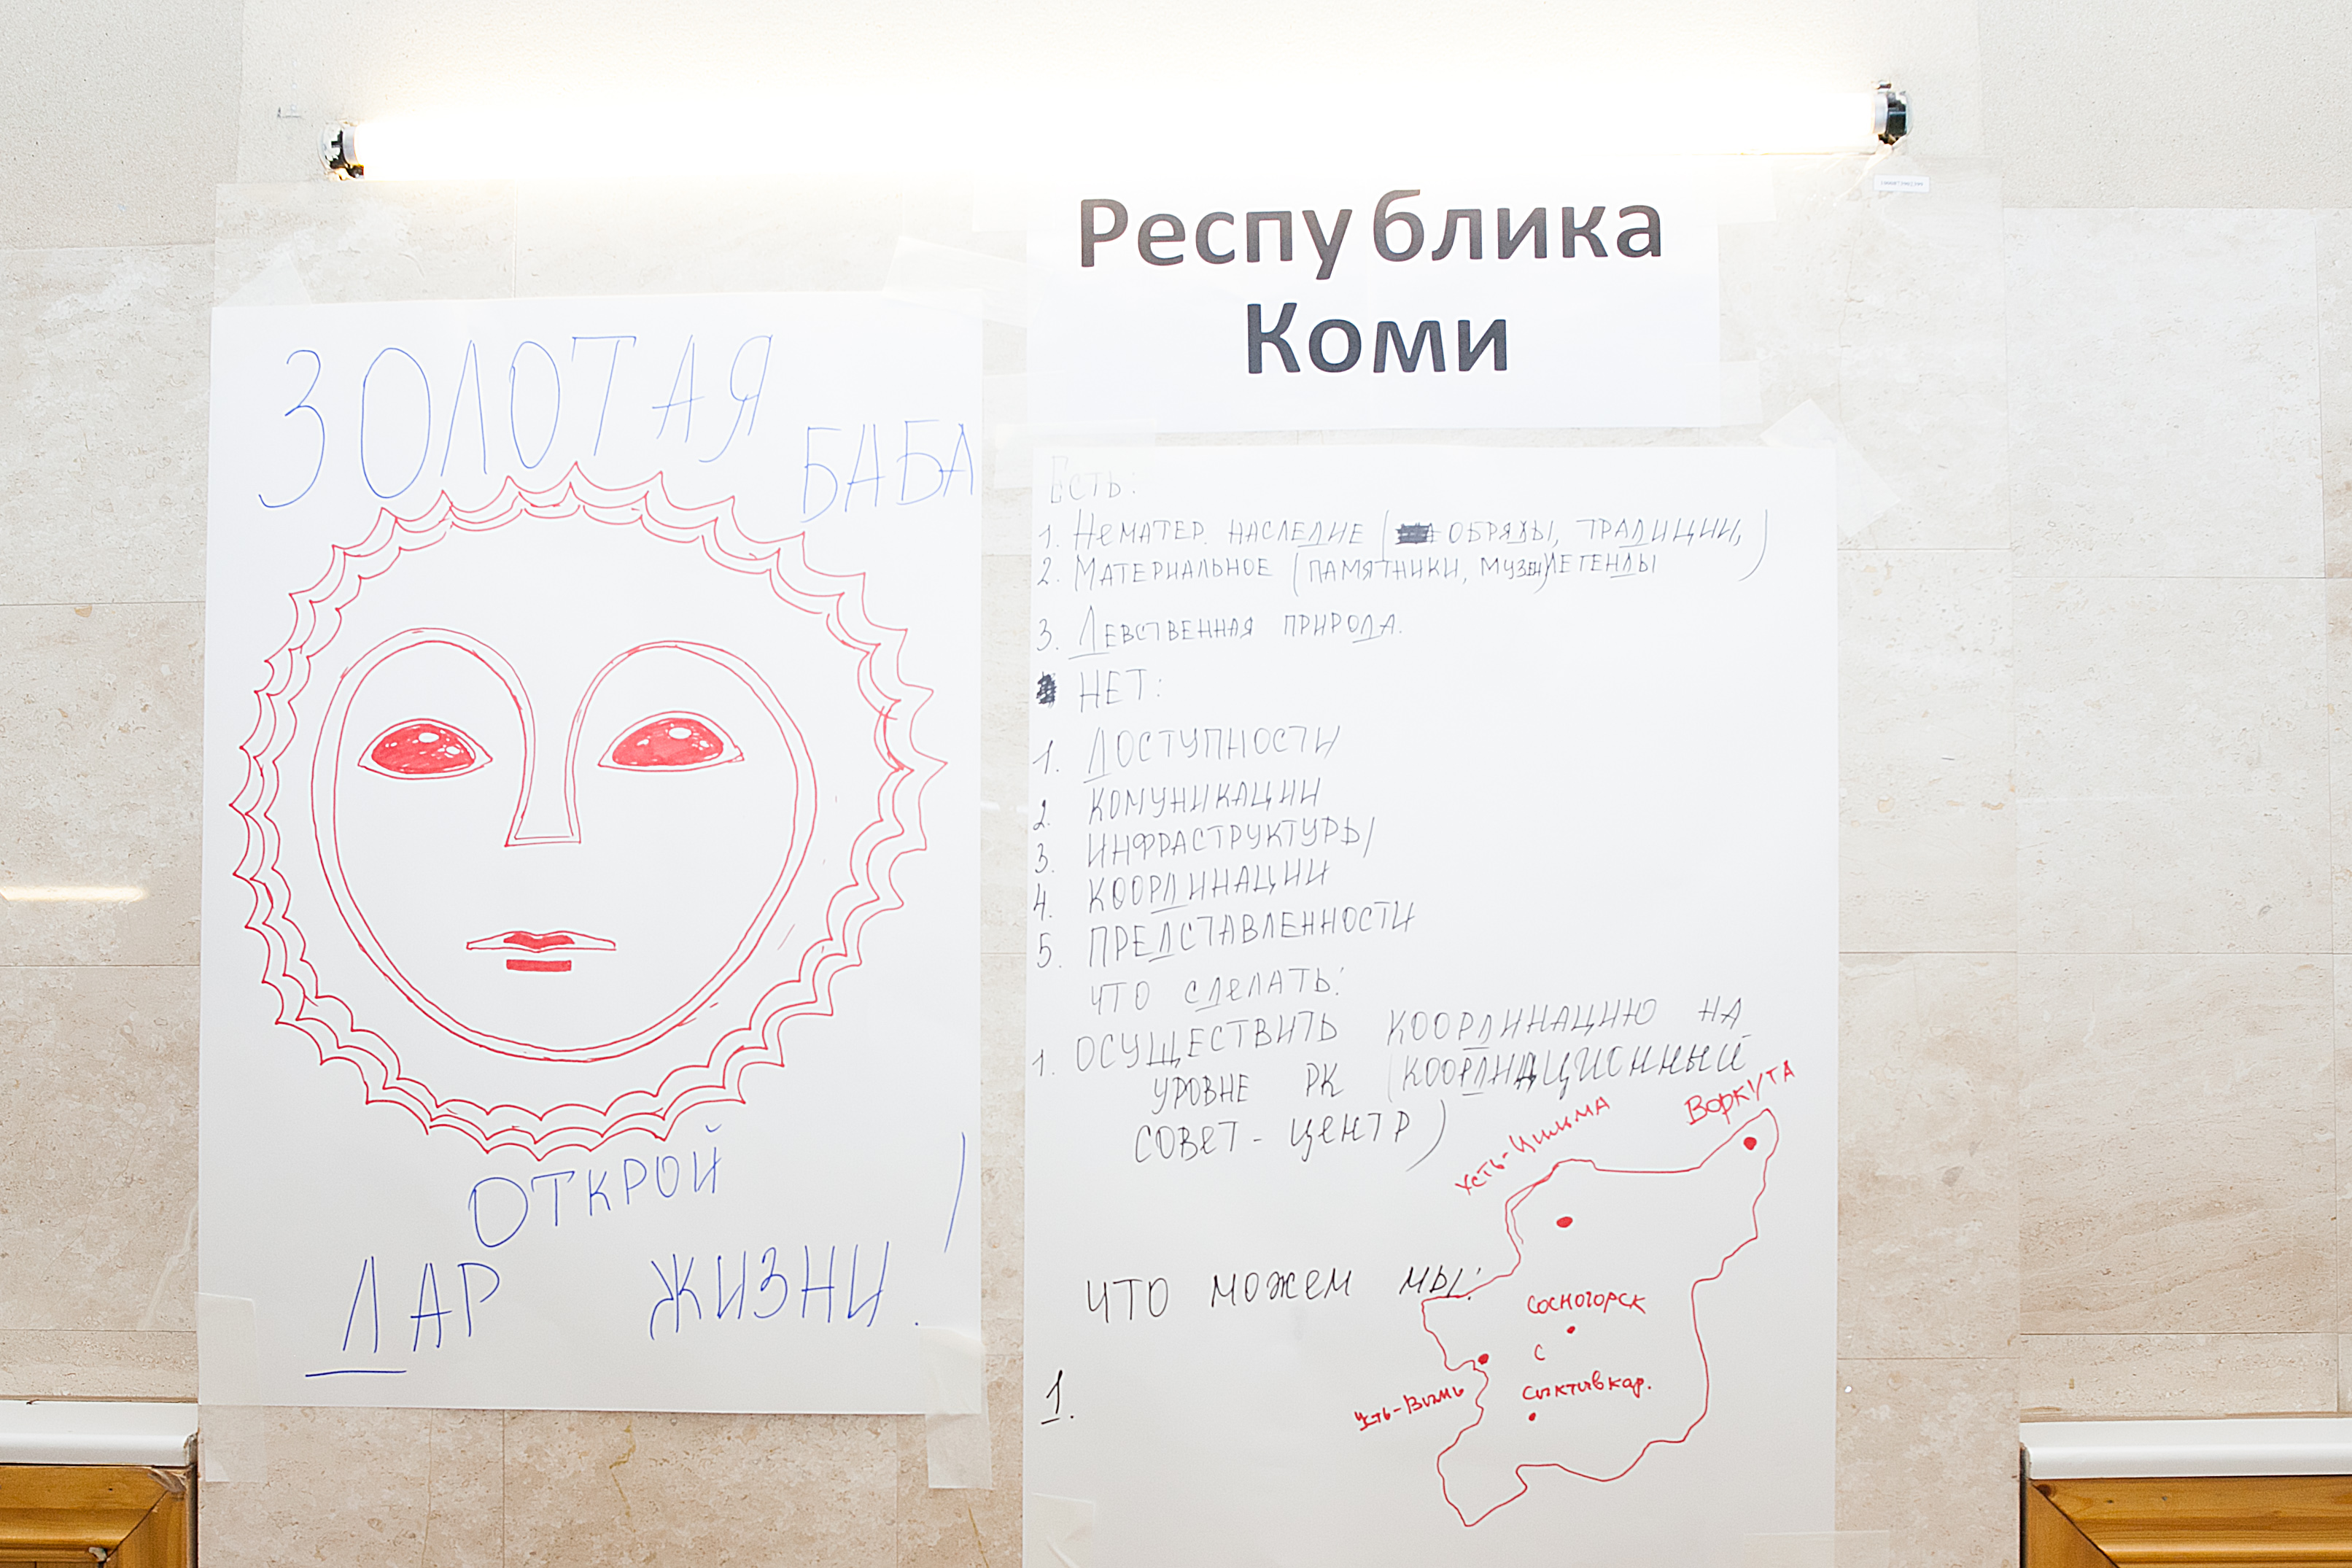 ЗОЛОТАЯ
БАБА
ОТКРОЙ
ДАР ЖИЗНИ.
Республика
Коми
Есть:
1. Нематер. наследие (обряды, традиции,)
2. Материальное (памятники, музеи) легенды
3. Девственная природа.
НЕТ:
1. Доступности
2. Комуникации
3. Инфраструктуры
4. Координации
5. Представленности
Что сделать:
1. Осуществить координацию на
уровне РК (координационный
совет-центр)
Что можем мы:
1.
Воркута
Усть-Цильма
Сосногорск
С
Усть-Вымь
Сыктывкар.